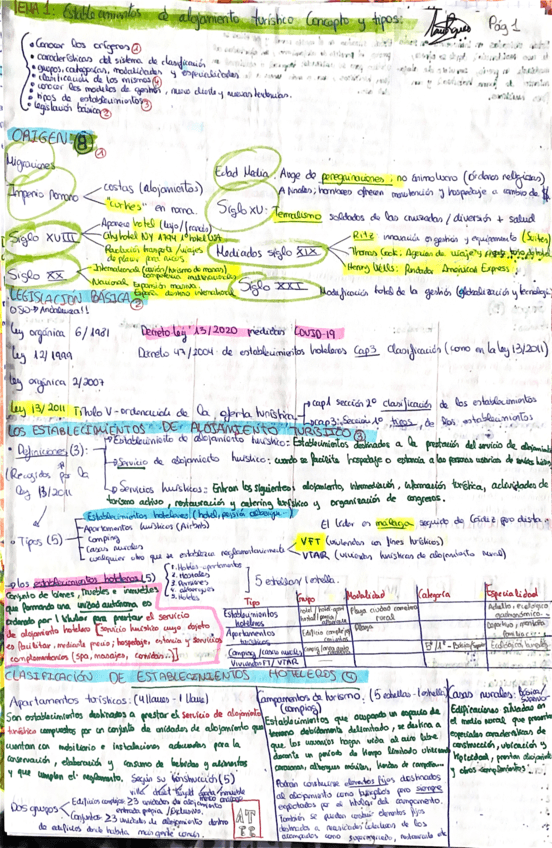 TEMA 1. Establecimientos de alojamiento turístico Concepto y tipos:
Pág 1
• Conocer los orígenes ①
• características del sistema de clasificación
grupos, categorías, modalidades y especialidades
• clasificación de los mismos ④
• conocer los modelos de gestión, nuevo cliente y nuevas tendencias.
• tipos de establecimientos ③
• legislación básica ②
ORIGEN 8
①
Migraciones
Imperio Romano
costas (alojamientos)
en roma.
Edad Media. Auge de peregrinaciones, no ánimo lucro (órdenes religiosas)
A finales;
ofrecen manutención y hospedaje a cambio de $
Siglo XV: Termalismo soldados de las cruzadas / diversión + salud
Siglo XVIII
Aparece hotel (lujo/francés)
City hotel NY 1794 1º hotel USA
Mediados siglo XIX
Ritz innovación organización y equipamiento (Suites)
Thomas Cook: Agencias de viaje y
Henry Wells: Fundador American Express
Siglo XX
Internacional (avión/turismo de masas)
Nacional Expansión masiva.
España destino internacional
Siglo XXI
Modificación total de la gestión (globalización y tecnología)
LEGISLACIÓN BÁSICA ②
OJO → Andalucía!!
Ley orgánica 6/1981
Decreto Ley 13/2020 medidas COVID-19
Ley 12/1999
Decreto 47/2004 de establecimientos hoteleros Cap3 clasificación (como en la ley 13/2011)
Ley orgánica 2/2007
Ley 13/2011 Título V - ordenación de la oferta turística
cap1 sección 2º clasificación de los establecimientos
cap3: Sección 1º tipos de los establecimientos
LOS ESTABLECIMIENTOS DE ALOJAMIENTO TURÍSTICO ③
• Definiciones (3):
(Recogidas por la
ley 13/2011
→ Establecimiento de alojamiento turístico: Establecimientos destinados a la prestación del servicio de alojamiento
→ Servicio de alojamiento turístico: cuando se facilita hospedaje o estancia a las personas usuarias de servicios turísticos
→ Servicios turísticos: Entran los siguientes: alojamiento, intermediación, información turística, actividades de
turismo activo, restauración y catering turístico y organización de congresos.
• Tipos (5)
Establecimientos hoteleros (hotel, pensión albergue...)
Apartamentos turísticos (Airbnb)
Camping
Casas rurales
cualquier otro que se establezca reglamentariamente
El líder en málaga seguido de Cádiz
VFT (viviendas con fines turísticos)
VTAR (viviendas turísticas de alojamiento rural)
→ los establecimientos hoteleros (5)
Conjunto de bienes, muebles e inmuebles
que formando una unidad autónoma es
ordenado por 1 titular para prestar el servicio
de alojamiento hotelero [servicio turístico cuyo objeto
es facilitar, mediante precio; hospedaje, estancia y servicios
complementarios (spa, masajes, comidas..)]
1. Hoteles-apartamentos
2. Hostales
3. Pensiones
4. albergues
5. Hoteles
5 estrellas/1 estrella.
Tipo Grupo Modalidad Categoría Especialidad
Establecimientos hoteleros
Playa ciudad carretera rural
Apartamentos turísticos
Edificio complejo
Playa
Deportivo, montaña
Camping/casas rurales
Vivienda VFT/VTAR
CLASIFICACIÓN DE ESTABLECIMIENTOS HOTELEROS ④
Apartamentos turísticos: (4 llaves - 1 llave)
Son establecimientos destinados a prestar el servicio de alojamiento
turístico compuestos por un conjunto de unidades de alojamiento que
cuentan con mobiliario e instalaciones adecuadas para la
conservación, elaboración y consumo de bebidas y alimentos
y que cumplen el reglamento. Según su construcción (5)
Dos grupos
Edificios/complejos: 23 unidades de alojamiento
entrada propia/Exclusivo.
Conjuntos: 23 unidades de alojamiento dentro
de edificios donde habita más gente común.
AT
Campamentos de turismo: (5 estrellas - 1 estrella)
(camping)
Establecimientos que ocupando un espacio de
terreno debidamente delimitado, se destina a
que los usuarios hagan vida al aire libre
durante un período de tiempo limitado utilizando
caravanas, albergues móviles, tiendas de campaña...
Podrán construirse elementos fijos destinados
al alojamiento como bungalós pero siempre
explotados por el titular del campamento.
También se pueden construir elementos fijos
destinados a necesidades colectivas de los
acampados como supermercado, restaurante etc
Casas rurales: básica/superior
Edificaciones situadas en
el medio rural, que presentan
especiales características de
construcción, ubicación y
tipicidad, prestan alojamiento
y otros complementarios.